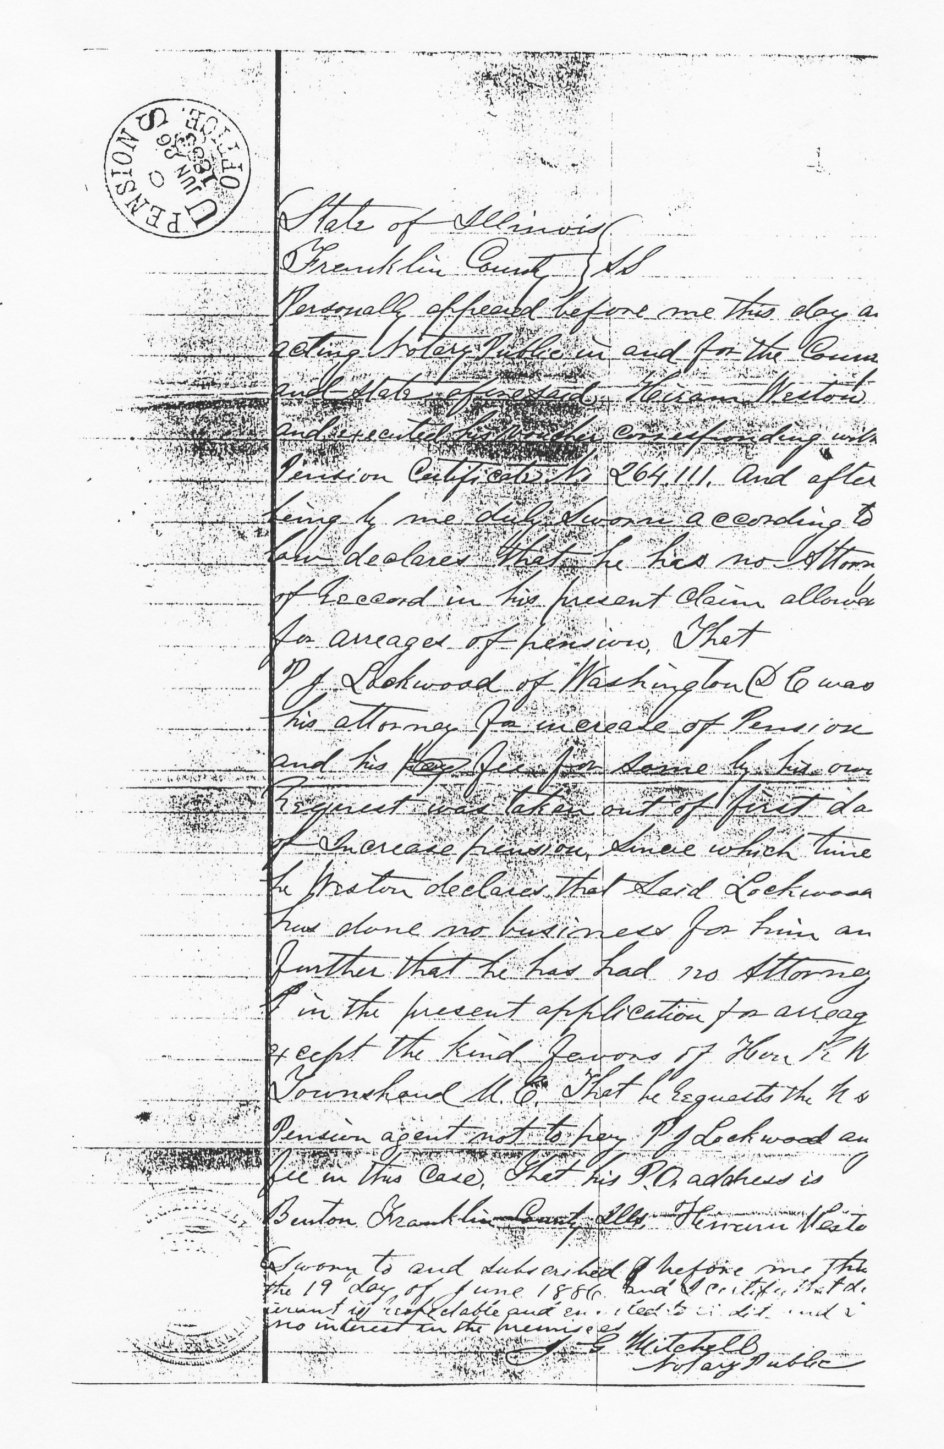 U.S. PENSION OFFICE.
JUN 26
State of Illinois
Franklin County } SS
Personally appeared before me this day a
acting Notary Public in and for the Coun
and State aforesaid, Heiram Weston
and executed his voucher corresponding with
Pension Certificate No 264.111. and after
being by me duly sworn according to
law declares that he has no Attorn
of Reccord in his present claim allowed
for arreages of pension, That
P J Lockwood of Washington D C was
his attorney for increase of Pension
and his fee for same by his own
Request was taken out of first
of Increase pension, since which time
he Weston declares that said Lockwood
has done no business for him an
further that he has had no Attorney
in the present application for arreag
except the kind favors of Hon R W
Townshend M. C. That he Requests the
Pension agent not to pay P J Lockwood an
fee in this case, That his P.O. address is
Benton Franklin County Ills. Heiram Westo
Sworn to and subscribed before me this
the 19 day of June 1886 and I certify that
is respectable and
no interest in the premises
J G Mitchell
Notary Public